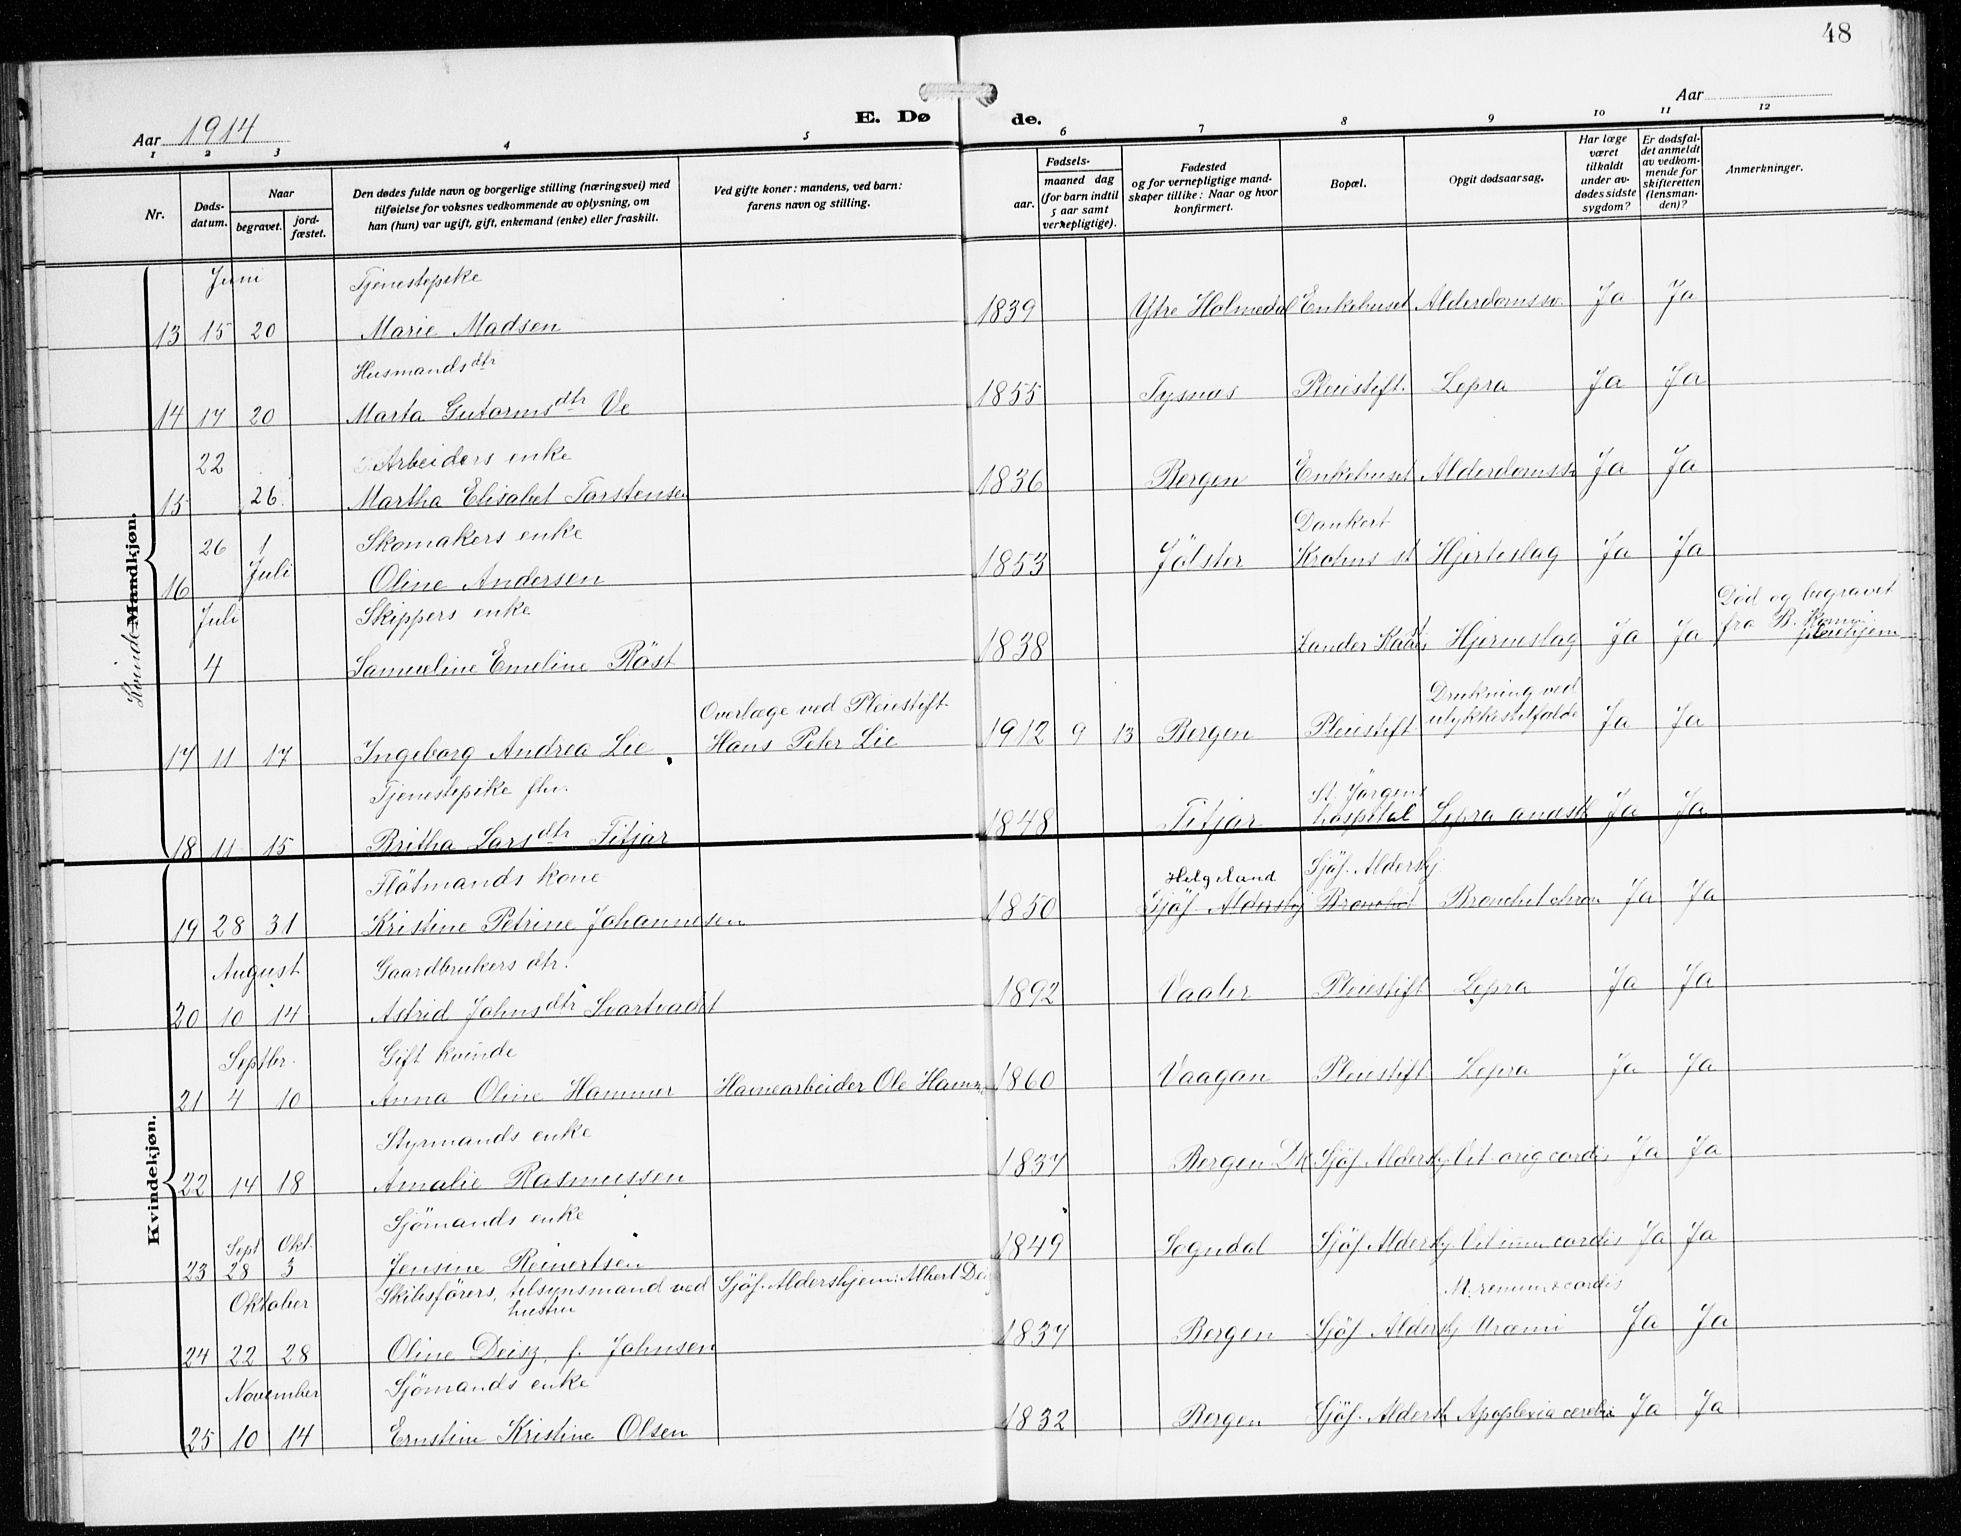 48
Aar 1914
E. Dø de.
Aar
1 2 3 4 5 6 7 8 9 10 11 12
Nr.
Døds-
datum.
Naar
begravet.
jord-
fæstet.
Den dødes fulde navn og borgerlige stilling (næringsvei) med
tilføielse for voksnes vedkommende av oplysning, om
han (hun) var ugift, gift, enkemand (enke) eller fraskilt.
Ved gifte koner: mandens, ved barn:
farens navn og stilling.
Fødsels-
aar.
maaned dag
(for barn indtil
5 aar samt
vernepligtige).
Fødested
og for vernepligtige mand-
skaper tillike: Naar og hvor
konfirmert.
Bopæl.
Opgit dødsaarsag.
Har læge
været
tilkaldt
under av-
dødes sidste
sygdom?
Er dødsfal-
det anmeldt
av vedkom-
mende for
skifteretten
(lensman-
den)?
Anmerkninger.
Kvinde Mandkjøn.
Juni Tjenestepike
13 15 20 Marie Madsen 1839 Ytre Holmedal Enkehuset Alderdomssv. Ja Ja
Husmandsdtr
14 17 20 Marta Gutormsdtr Ve 1855 Tysnæs Pleiestift. Lepra Ja Ja
22 Arbeiders enke
15 26. Martha Elisabet Torstensen 1836 Bergen Enkehuset Alderdomssv Ja Ja
26 1 Skomakers enke Dankert
16 Juli Oline Andersen 1853 Jölster Krohns st Hjerteslag Ja Ja
Juli Skippers enke Död og begravet
4 Samueline Emeline Röst 1838 Zander Kaaes Hjerneslag Ja Ja fra B. Kom.
pleiehjem
Overlæge ved Pleiestift. Drukning ved
17 11 17 Ingeborg Andrea Lie Hans Peter Lie 1912 9 13 Bergen Pleiestift. ulykkestilfælde Ja Ja
Tjenestepike fhv. St. Jørgens
18 11 15 Britha Larsdtr Fitjar 1848 Fitjar hospital Lepra anæsth Ja Ja
Kvindekjøn.
Flötmands kone Helgeland Sjöf. Aldershj.
19 28 31 Kristine Petrine Johannesen 1850 Sjöf. Aldershj Bronchit Bronchit chron Ja Ja
August Gaardbrukers dtr.
20 10 14 Astrid Johnsdtr Svartvadet 1892 Vaaler Pleiestift Lepra Ja Ja
Septbr. Gift kvinde
21 4 10 Anna Oline Hammer Havnearbeider Ole Hamm 1860 Vaagan Pleiestift Lepra Ja Ja
Styrmands enke
22 14 18 Amalie Rasmussen 1837 Bergen DK Sjöf. Aldershj Vit. orig cordis Ja Ja
Sjömands enke
Sept Okt.
23 28 3 Jensine Reinertsen 1849 Sogndal Sjöf Aldershj Vitium cordis Ja Ja
Oktober Skibsförers, tilsynsmand ved Sjöf. Aldershjem: Albert Dei
hustru cordis
24 22 28 Oline Deisz, f. Johnsen 1837 Bergen Sjöf. Aldershj Uræmi Ja Ja
November Sjömands enke
25 10 14 Ernstine Kristine Olsen 1832 Bergen Sjöf. Aldersh Apoplexia cerebri Ja Ja